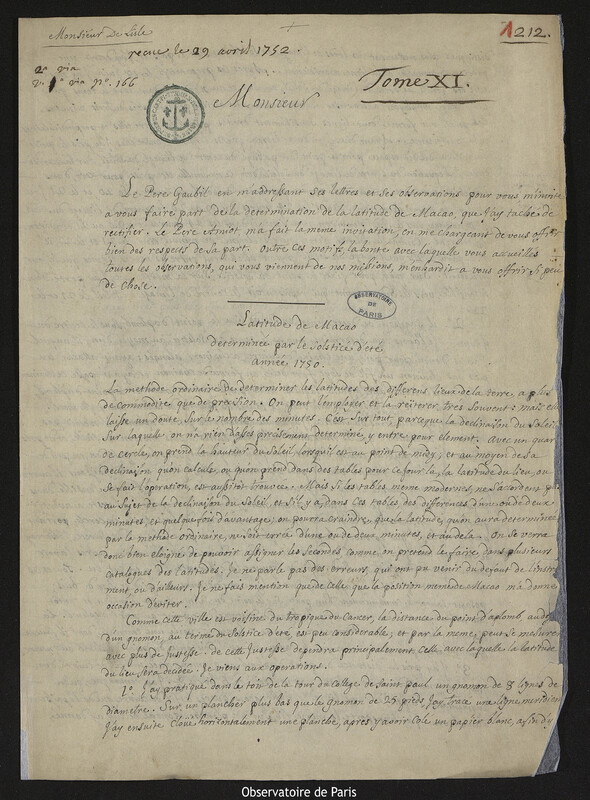 Monsieur De Lisle
recue le 29 avril 1752.
1212.
2a via
1a via No. 166
Tome XI.
Monsieur
Le Pere Gaubil en m'adressant ses lettres et ses observations pour vous m'invite
a vous faire part de la determination de la latitude de Macao, que j'ay taché de
rectifier. Le Pere Amiot m'a fait la meme invitation, en me chargeant de vous offrir
bien des respects de sa part. outre ces motifs, la bonté avec laquelle vous accueilles
toutes les observations, qui vous viennent de nos missions, m'enhardit a vous offrir si peu
de chose.
OBSERVATOIRE DE PARIS
Latitude de Macao
determinée par le solstice d'eté
année 1750.
La methode ordinaire de determiner les latitudes des differens lieux de la terre, a plus
de commodité que de précision. On peut l'employer et la réiterer tres souvent: mais elle
laisse un doute sur le nombre des minutes. C'est sur tout, parceque la declinaison du Soleil,
sur laquelle on n'a rien d'assés precisement determiné, y entre pour element. Avec un quart
de cercle, on prend la hauteur du Soleil lorsqu'il est au point de midy; et au moyen de sa
declinaison qu'on calcule, ou qu'on prend dans des tables pour ce jour la, la latitude du lieu, ou
se fait l'operation, est aussitôt trouvée. Mais si les tables meme modernes, ne s'acordent pas
au sujet de la declinaison du Soleil, et s'il y a dans ces tables des differences d'une ou de deux
minutes, et quelquefois d'avantage; on pourra craindre, que la latitude, qu'on aura determinée
par la methode ordinaire, ne soit erronée d'une ou de deux minutes, et au dela. On se verra
donc bien eloigné de pouvoir assigner les secondes, comme on pretend le faire dans plusieurs
catalogues des latitudes. Je ne parle pas des erreurs, qui ont pu venir du defaut de l'instru-
ment, ou d'ailleurs. Je ne fais mention que de celle que la position meme de Macao m'a donné
occasion d'eviter.
Comme cette ville est voisine du tropique du Cancer, la distance du point d'aplomb au dessous
d'un gnomon, au terme du Solstice d'eté, est peu considerable; et par la meme, peut se mesurer
avec plus de justesse. de cette justesse dependra principalement celle, avec laquelle la latitude
du lieu sera decidée. Je viens aux operations.
1o. J'ay pratiqué dans le toit de la tour du College de Saint paul un gnomon de 8 lignes de
diametre. Sur un plancher plus bas que le gnomon de 25 pieds, j'ay tracé une ligne meridienne
J'ay ensuite cloué horizontalement une planche, après y avoir colé un papier blanc, afin d'y
Observatoire de Paris